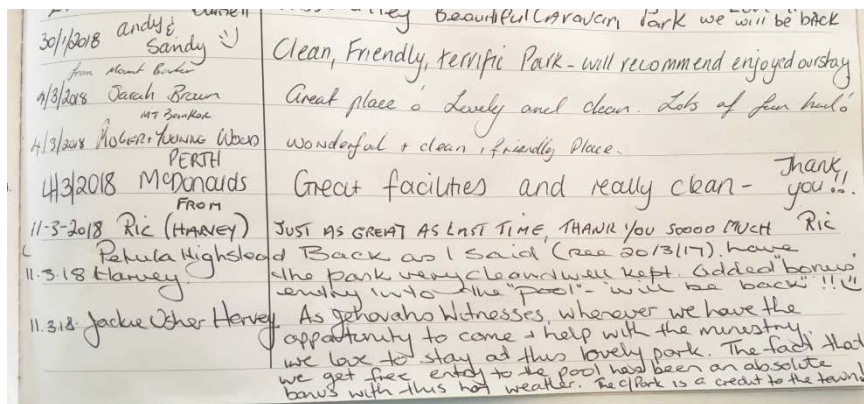 Beautiful Caravan Park we will be back
30/1/2018 andy & Sandy Clean, Friendly, terrific Park - will recommend enjoyed our stay
from Mount Barker
/3/2018 Sarah Braun Great place & Lovely and clean. Lots of fun had
MT Barker
4/3/2018 ROGER + YVONNE WOOD wonderful + clean, friendly Place.
PERTH
4/3/2018 McDonalds Great facilities and really clean - Thank you!!
FROM
11-3-2018 Ric (HARVEY) JUST AS GREAT AS LAST TIME, THANK YOU SOOOO MUCH Ric
Petula Highstead Back as I said (see 20/3/17). have
11.3.18 Harvey. the park very clean & well kept. added "bonus"
entry into the "pool" - "will be back" !!
11.3.18. Jackie Usher Harvey As Jehovahs Witnesses, whenever we have the
opportunity to come + help with the ministry,
we love to stay at this lovely park. The fact that
we get free entry to the pool has been an absolute
bonus with this hot weather. The C/Park is a credit to the town!